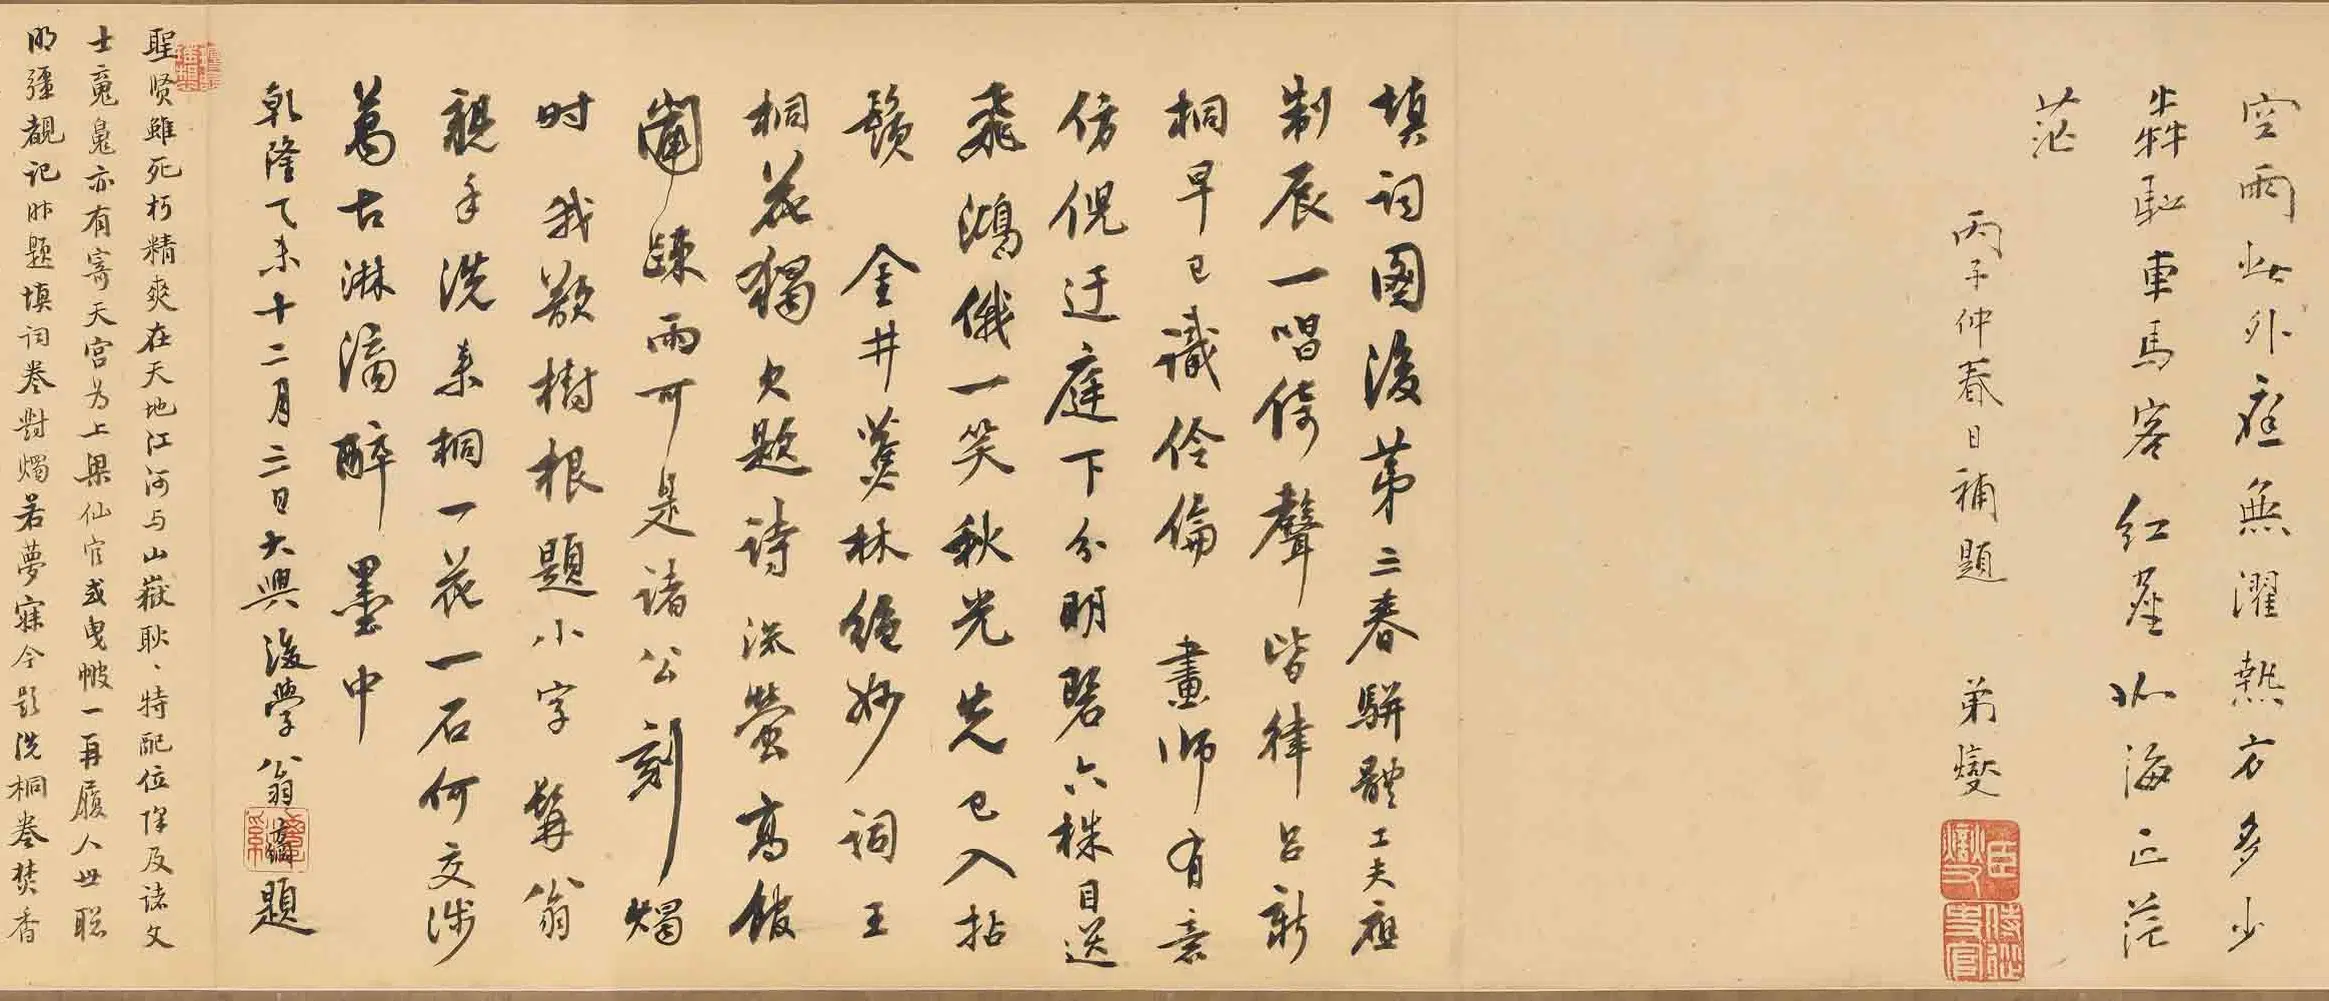 空雨此外庭無濯熱方多少
犇馳車馬客紅塵北海正茫
茫
丙子仲春日補題 弟燮
填詞圖後第二春駢體工夫應
制辰一唱倚聲皆律呂新
桐早已識伶倫 畫师有意
仿倪迂庭下分明碧六株目送
飛鴻俄一笑秋光先已入拈
鬚 金井黃林絕妙詞王
桐花獨欠題詩流螢高館
闌疎雨可是諸公刻燭
时 我欲樹根題小字髯翁
親手洗来桐一花一石何交涉
萬古淋漓醉墨中
乾隆乙未十二月三日大興後學翁方綱題
聖贤雖死朽精爽在天地江河与山嶽耿〻特配位降及諸文
士魂鬼亦有寄天宫为上界仙官或曳帔一再履人世聡
明彊覩记昨题填词卷對燭若夢寐今題洗桐卷焚香